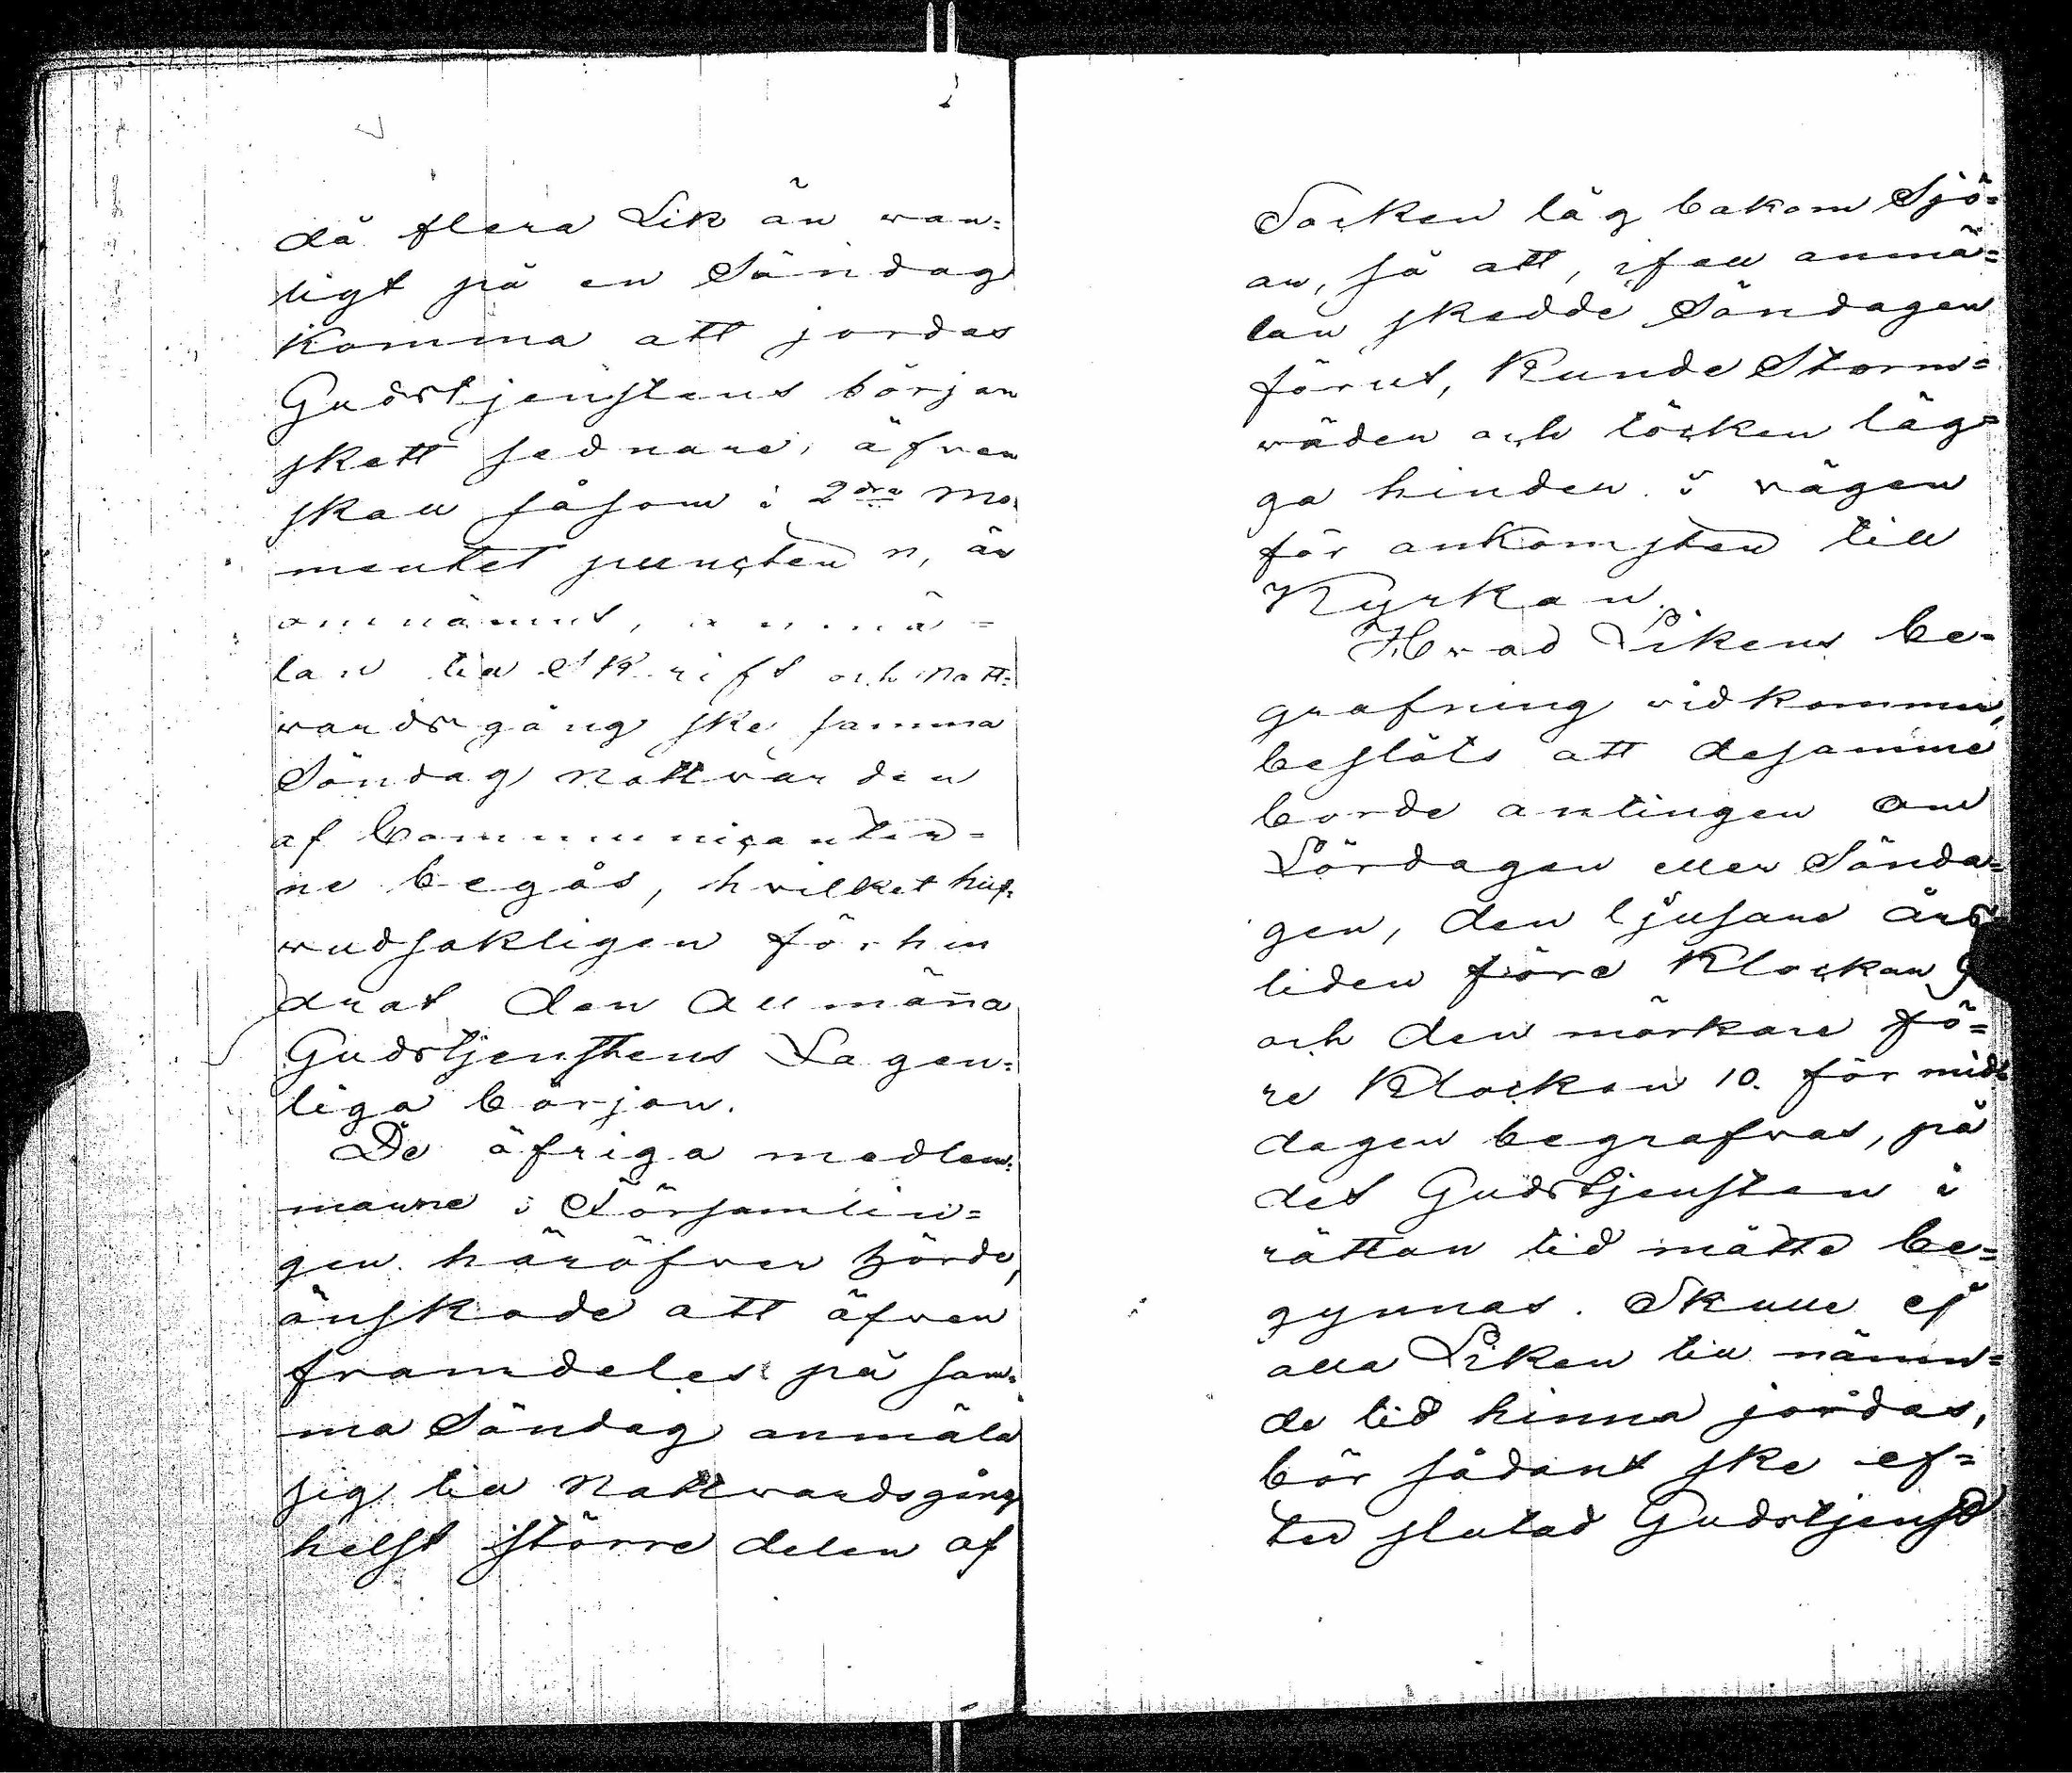 då flera Lik än wan=
ligt på en Söndag
komma att jordas
Gudstjenstens början
skett sednare; äfven
skall såsom i 2dra Mo
mentet puncten n, är
omnämnt, anmä=
lan till Skrift och Natt=
vardsgång ske samma
Söndag Nattvarden
af Communicanter=
ne begås, hvilket huf=
wudsakligen förhin
drat den allmäña
Gudstjenstens Lagen=
liga början.
De öfriga medlem=
marne i Församlin=
gen häröfver hörde,
önskade att äfven
framdeles på sam=
ma Söndag anmäla
sig till Nattvardsgång
helst större delen af
Socken låg bakom Sjö=
an, så att, ifall anmä=
lan skedde Söndagen
förut, kunde Storm=
väder och töcken läg=
ga hinder i vägen
för ankomsten till
Kyrkan.
Hvad Likens be=
grafning vidkommer,
beslöts att desamme
borde antingen om
Lördagen eller Sönda=
gen, den ljusare års
tiden före Klockan 9
och den mörkare fö=
re Klockan 10. för mid=
dagen begrafvas, på
det Gudstjensten i
rättan tid måtte be=
gynnas. Skulle ej
alla Liken till nämn=
de tid hinna jordas,
bör sådant ske ef=
ter slutad Gudstjenst